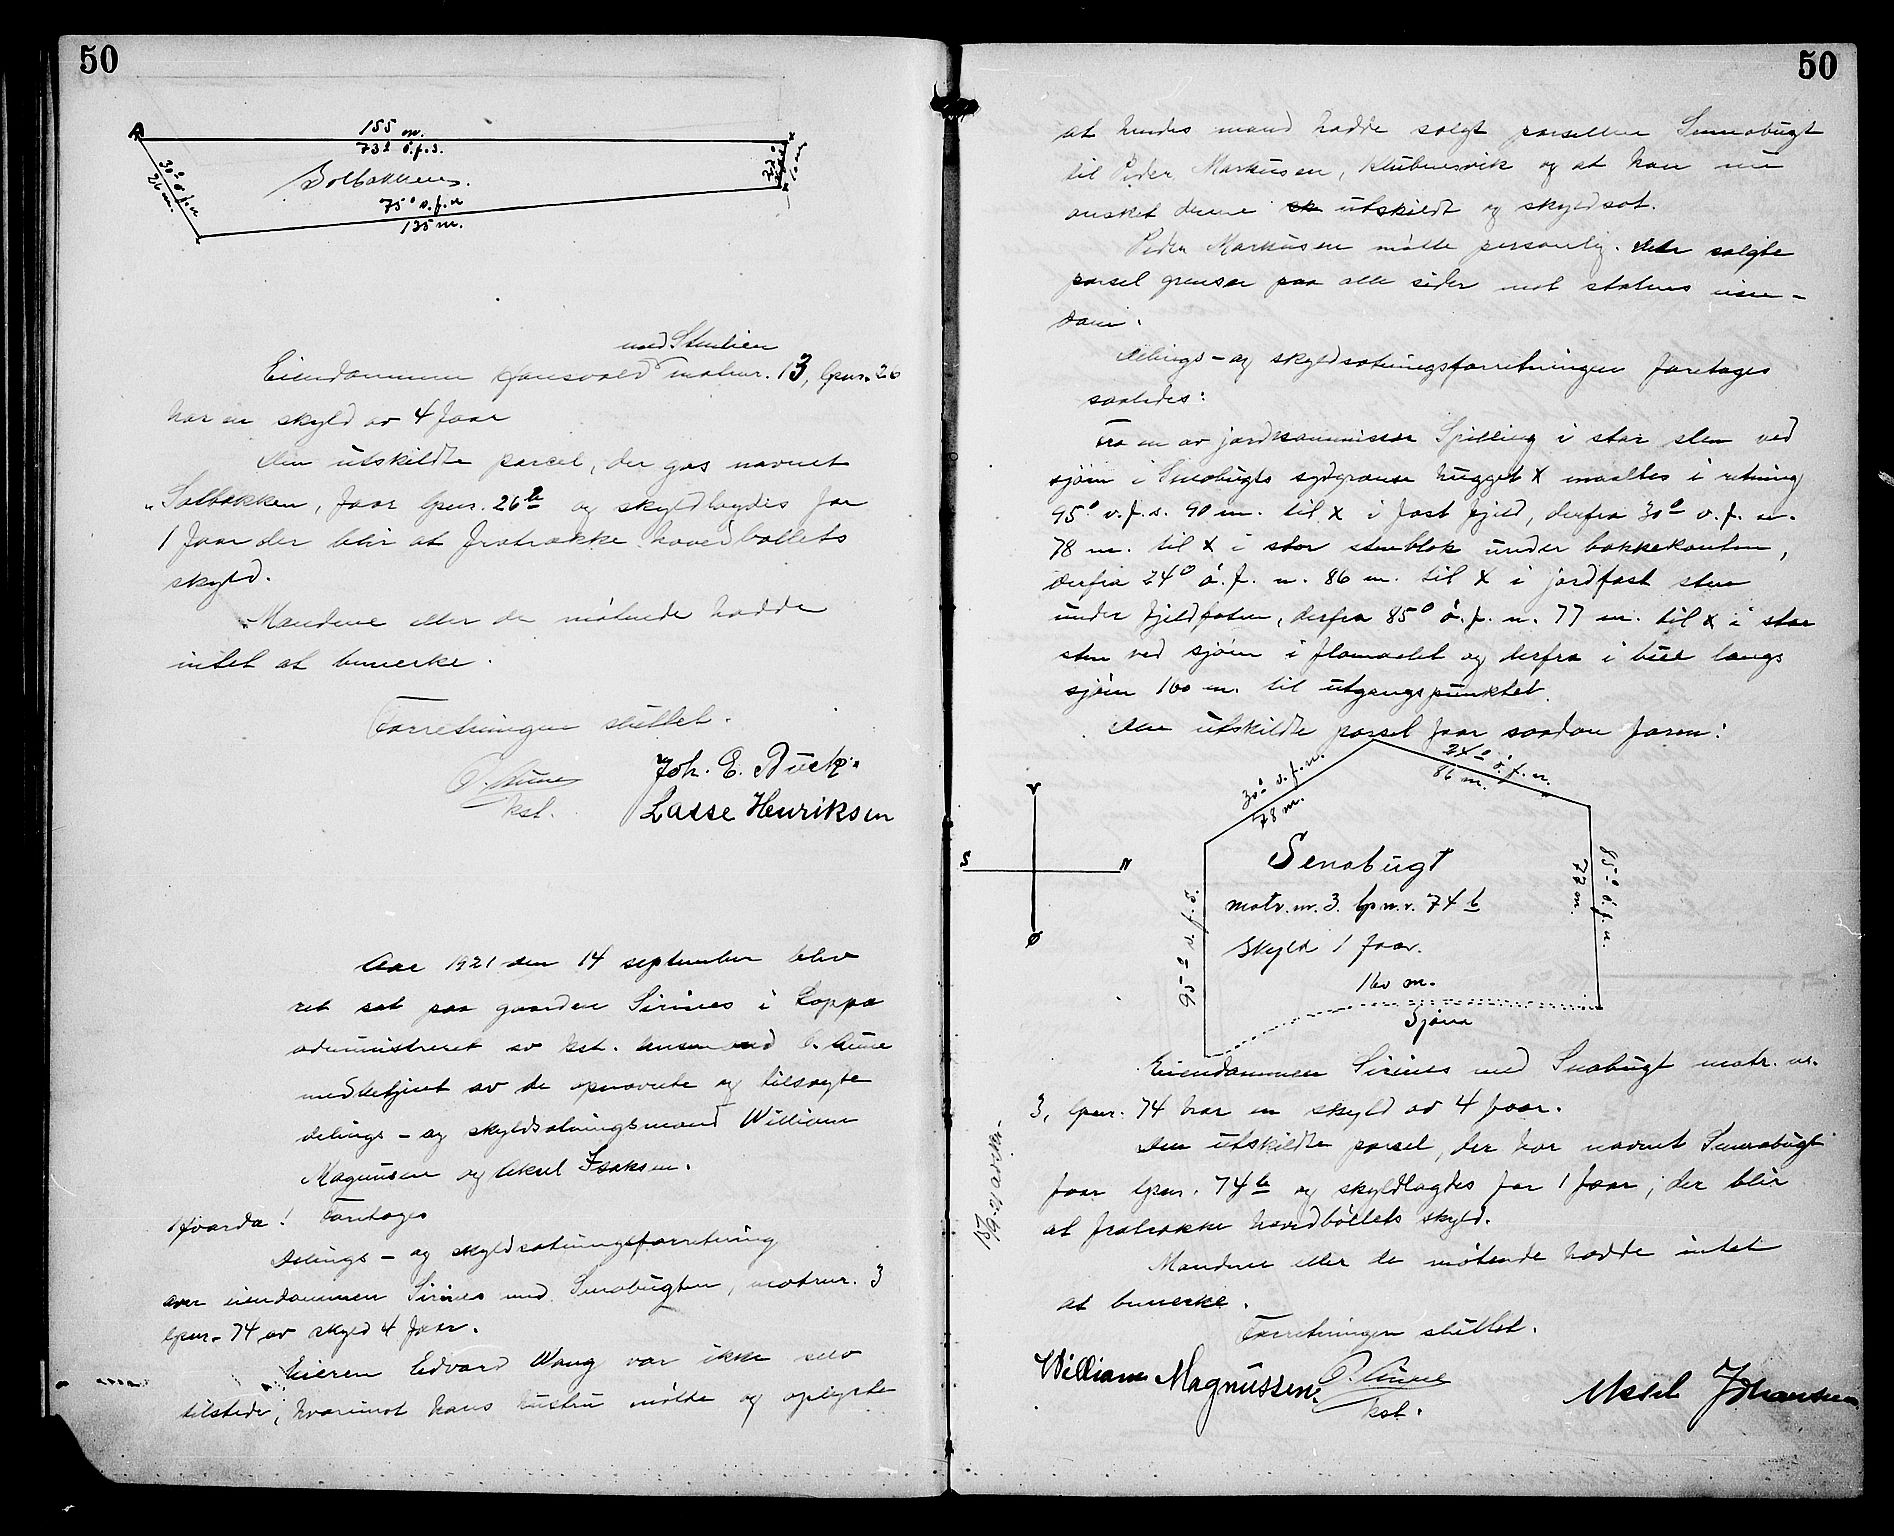 50
155 m.
73° ö.f.s.
Solbakken.
30° ö.f.n
26 m.
10 m
75° v.f.n
135 m.
med Stenlien
Eiendommen Hansvold matrnr. 13, lpnr. 26
har en skyld av 4 før
Den utskildte parcel, der gas navnet
"Solbakken, faar lpnr. 26 b og skyldlægdes for
1 før der blir at fratrække hovedbøllets
skyld.
Mændene eller de møtende hadde
intet at bemerke.
Forretningen sluttet.
O. Aune
kst.
Joh. E. Buck.
Lasse Henriksen
Aar 1921 den 14 september blev
ret sat paa gaarden Sirines i Loppa
administreret av kst. lensmand O. Aune
medbetjent av de opnævnte og tilsagte
delings- og skyldsætningsmænd William
Magnusen og Aksel Isaksen.
Hvorda! Foretages
Delings- og skyldsætningsforretning
over eiendommen Sirines med Smabugten, matrnr. 3
lpnr. 74 av skyld 4 før.
Eieren Edvard Wang var ikke selv
tilstede, hvorimot hans hustru møtte og oplyste
50
at hendes mand hadde solgt parsellen Sennabugt
til Peder Markusen, Klubnesvik og at han nu
ønsket denne utskildt og skyldsat.
Peder Markusen møtte personlig. Den solgte
parsel grenser paa alle sider mot statens eien-
dom.
Delings- og skyldsætningsforretningen foretages
saaledes:
Fra en av jordkommissær Spilling i stor sten ved
sjøen i Smabugts sydgrænse hugget x maaltes i retning
95° v.f.s. 90 m. til x i fast fjeld, derfra 30° v.f.n.
78 m. til x i stor stenblok under bakkekanten,
derfra 24° ö.f.n. 86 m. til x i jordfast sten
under fjeldfoten, derfra 85° ö.f.n. 77 m. til x i stor
sten ved sjøen i flomaalet og derfra i bue langs
sjøen 160 m. til utgangspunktet.
Den utskildte parsel faar saadan form:
30° v.f.n.
78 m.
24° ö.f.n.
86 m.
V
S
N
Ø
Senabugt
matr.nr. 3. lpnr. 74 b
Skyld 1 før.
95° v.f.s.
85° ö.f.n.
77 m.
160 m.
Sjøen
Eiendommen Sirines med Smabugt matr. nr.
3, lpnr. 74 har en skyld av 4 før.
Den utskildte parsel, der har navnet Sennabugt
faar lpnr. 74 b og skyldlagdes for 1 før, der blir
at fratrække hovedbøllets skyld.
Mændene eller de møtende hadde intet
at bemerke.
Forretningen sluttet.
William Magnussen.
O. Aune
kst.
Aksel Johansen